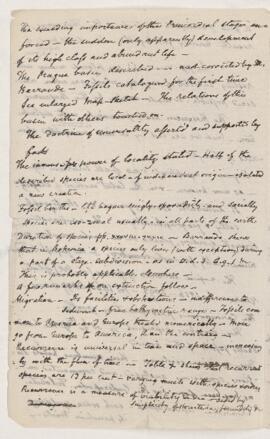 The unending importance of the Primordial stages en-
forced – the sudden (only apparently) development
of its high class and abundant life –
The Prague basin described – and corrected by M.
Barrande – Fossils catalogued for the first time
See enlarged Map-sketch – The relations of this
basin with others touched on.
The doctrine of universality asserted and supported by
facts
The power of locality stated – Half of the
described species are local – of independent origin –
a new creation.
Fossil life – singly, sporadically, and socially
Species are – usually – in all parts of the earth
Duration of species – Barrande shows
that in Bohemia a species only lives (with exceptions) during
a part of a stage-subdivision – as in D.d. 2 &
This is probably applicable elsewhere –
A few remarks upon extinction follow –
Migration – Its facilities & obstructions – indifference to
Sediment – free bathymetric range – Fossils com-
mon to America and Europe treated numerically – More
go from Europe to America, than the contrary –
Recurrence is universal in time and space – increasing
with the flow of time – Table 4 – recurrent
species are 13 per cent – varying much with species
Recurrence is a measure of viability
simplicity of structure, fecundity &